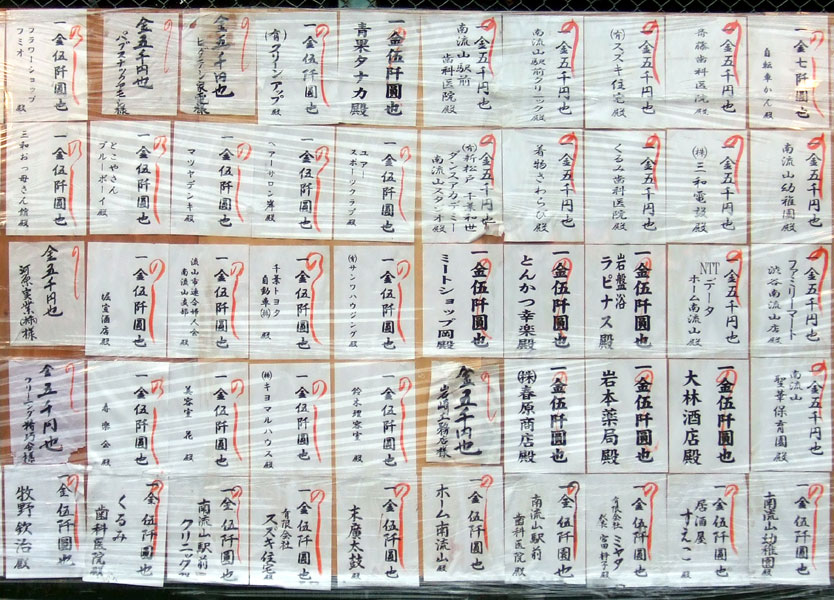 一金七阡圓也
自転車かん殿
一金五千円也
斉藤歯科医院殿
一金五千円也
(有)スズキ住宅殿
一金五千円也
南流山駅前クリニック殿
一金五千円也
南流山駅前
歯科医院殿
一金伍阡圓也
青果タナカ殿
一金伍阡圓也
(有)クリーンアップ殿
金五千円也
金五千円也
一金伍阡圓也
フラワーショップ
フミオ 殿
一金五千円也
南流山幼稚園殿
一金五千円也
(株)三和電設殿
一金五千円也
くるみ歯科医院殿
一金五千円也
着物さわらび殿
一金五千円也
(有)新松戸 千葉和世
ダンスアカデミー
南流山スタジオ殿
一金伍阡圓也
ユアー
スポーツクラブ殿
一金伍阡圓也
ヘアーサロン岸殿
一金伍阡圓也
マツヤデンキ殿
一金伍阡圓也
とこやさん
ブルーボーイ殿
一金伍阡圓也
三和おっ母さん殿
一金五千円也
ファミリーマート
渋谷南流山店殿
一金五千円也
NTTデータ
ホーム南流山殿
一金伍阡圓也
岩盤浴
ラピナス殿
一金伍阡圓也
とんかつ幸楽殿
一金伍阡圓也
ミートショップ岡殿
一金伍阡圓也
(有)サンワハウジング殿
一金伍阡圓也
千葉トヨタ
自動車(株)殿
一金伍阡圓也
流山市連合婦人会
南流山支部殿
一金伍阡圓也
酒店殿
金五千円也
河原実業(株)様
一金五千円也
南流山
聖華保育園殿
一金伍阡圓也
大林酒店殿
一金伍阡圓也
岩本薬局殿
一金伍阡圓也
(株)春原商店殿
金五千円也
岩崎工務店様
一金伍阡圓也
鈴木理容室殿
一金伍阡圓也
(株)キヨマルハウス殿
一金伍阡圓也
美容室 花殿
一金伍阡圓也
春楽会殿
金五千円也
一金伍阡圓也
南流山幼稚園殿
一金伍阡圓也
居酒屋
すえこ殿
一金伍阡圓也
有限会社ミヤタ
一金伍阡圓也
南流山駅前
歯科医院殿
一金伍阡圓也
ホーム南流山殿
一金伍阡圓也
末廣太鼓殿
一金伍阡圓也
有限会社
スズキ住宅殿
一金伍阡圓也
南流山駅前
クリニック殿
一金伍阡圓也
くるみ
歯科医院殿
一金伍阡圓也
牧野欽治殿